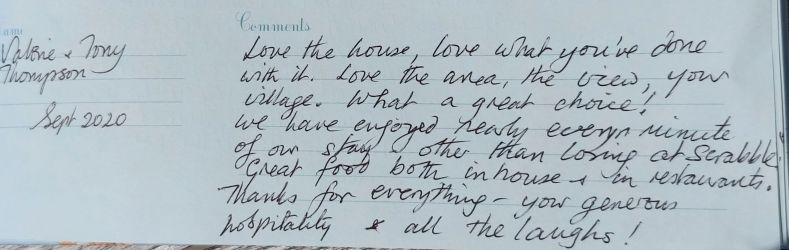 Name
Comments
Valerie & Tony
Thompson
Sept 2020
Love the house, love what you've done
with it. Love the area, the view, your
village. What a great choice!
We have enjoyed nearly every minute
of our stay - other than losing at Scrabble.
Great food both in house & in restaurants.
Thanks for everything - your generous
hospitality & all the laughs!